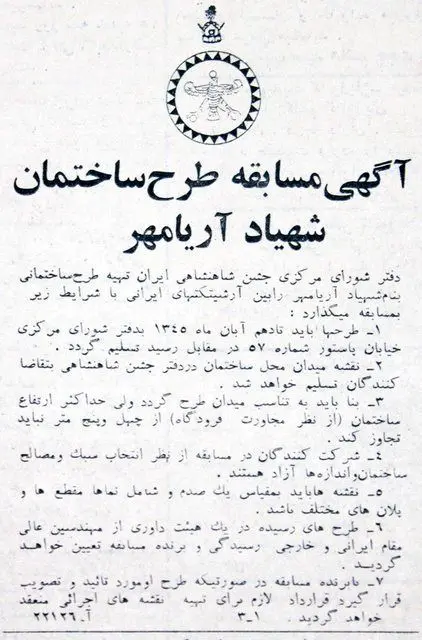 آگهی مسابقه طرح ساختمان
شهیاد آریامهر
دفتر شورای مرکزی جشن شاهنشاهی ایران تهیه طرح ساختمانی
بنام شهیاد آریامهر رابین آرشیتکتهای ایرانی با شرایط زیر
بمسابقه میگذارد :
۱ـ طرحها باید تادهم آبان ماه ۱۳۴۵ بدفتر شورای مرکزی
خیابان پاستور شماره ۵۷ در مقابل رسید تسلیم گردد .
۲ـ نقشه میدان محل ساختمان دردفتر جشن شاهنشاهی بتقاضا
کنندگان تسلیم خواهد شد .
۳ـ بنا باید به تناسب میدان طرح گردد ولی حداکثر ارتفاع
ساختمان (از نظر مجاورت فرودگاه) از چهل وپنج متر نباید
تجاوز کند .
۴ـ شرکت کنندگان در مسابقه از نظر انتخاب سبک ومصالح
ساختمان واندازه‌ها آزاد هستند .
۵ـ نقشه هاباید بمقیاس یک صدم و شامل نماها مقطع ها و
پلان های مختلف باشد .
۶ـ طرح های رسیده در یک هیئت داوری از مهندسین عالی
مقام ایرانی و خارجی رسیدگی و برنده مسابقه تعیین خواهد
گردید .
۷ـ بابرنده مسابقه در صورتیکه طرح اومورد تائید و تصویب
قرار گیرد قرارداد لازم برای تهیه نقشه های اجرائی منعقد
خواهد گردید . ۱ـ۳ آ.۲۲۱۲۶